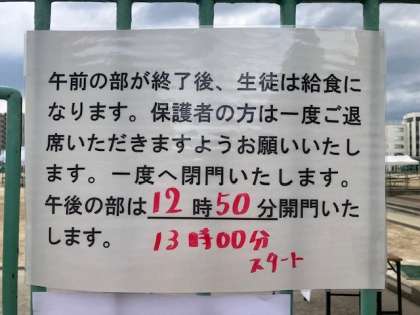 午前の部が終了後、生徒は給食に
なります。保護者の方は一度ご退
席いただきますようお願いいたし
ます。一度へ閉門いたします。
午後の部は12時50分開門いた
します。 13時00分
スタート